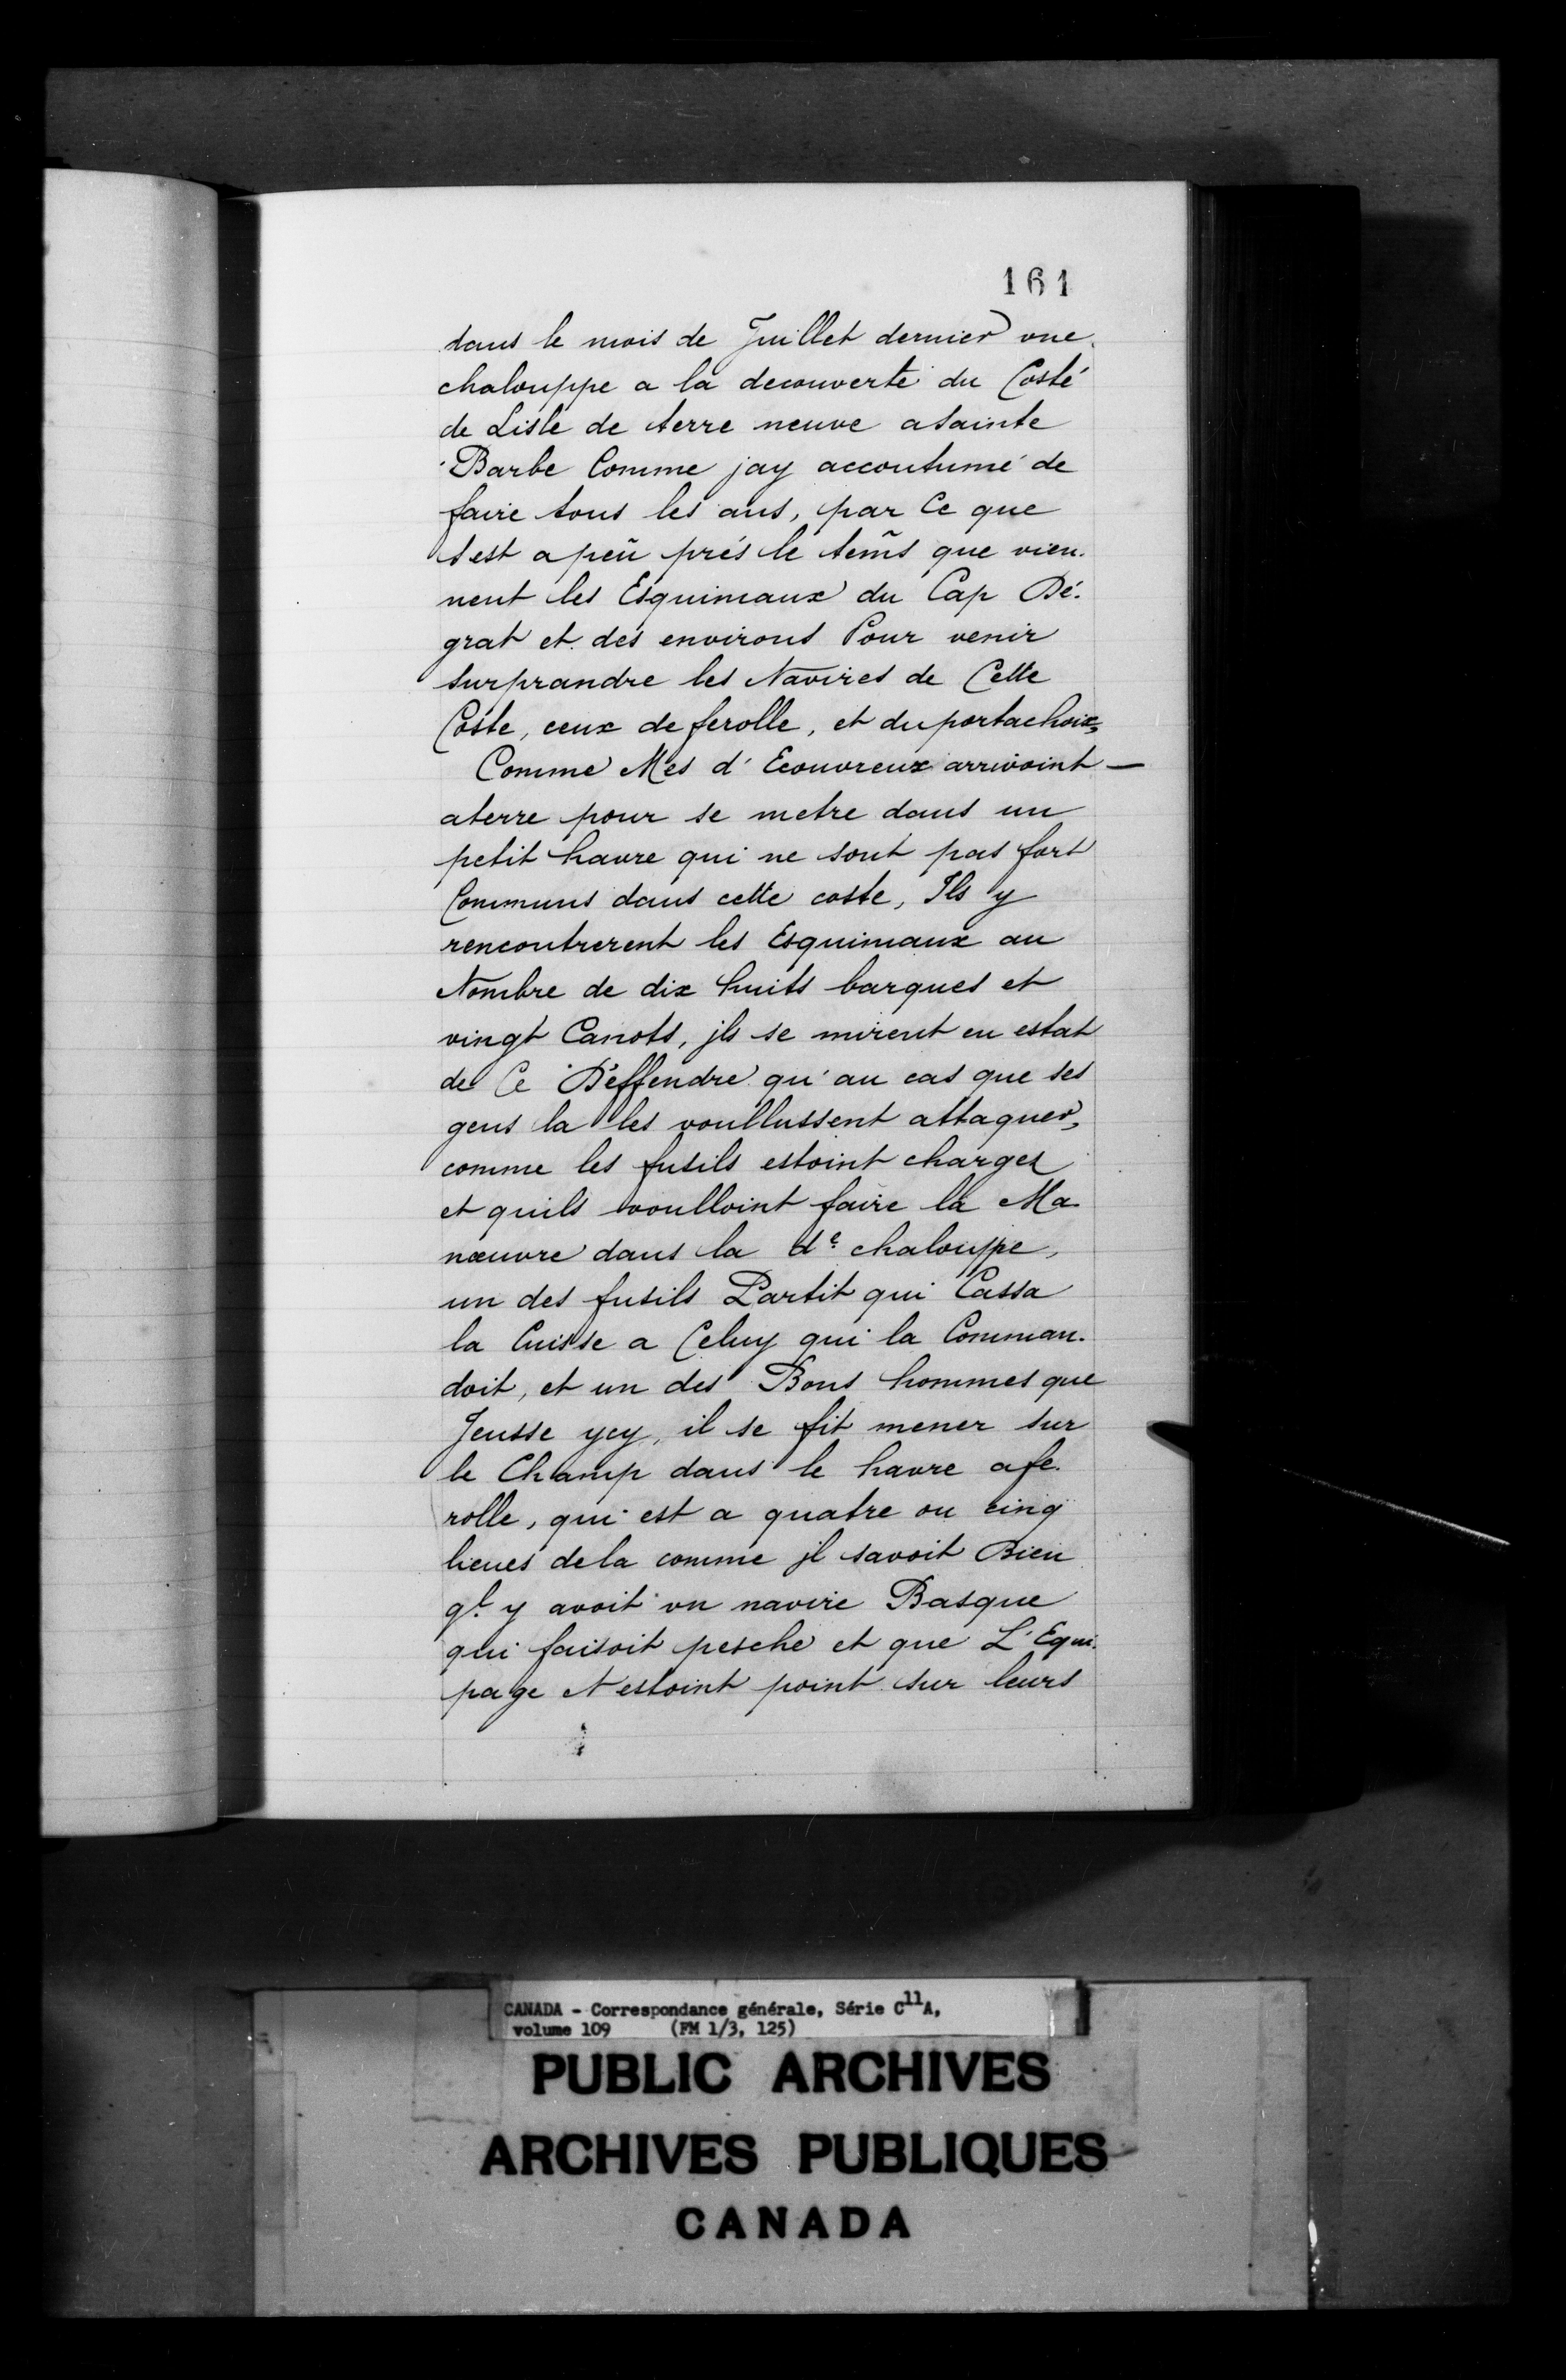 161
dans le mois de Juillet dernier vne
chalouppe a la decouverte du Costé
de Lisle de terre neuve asainte
Barbe Comme jay accoutumé de
faire tous les ans, par Ce que
sest apeu prés le tems que vien-
nent les Esquimaux du Cap Dé-
grat et des environs Pour venir
surprandre les Navires de Cette
Coste, ceux de ferolle, et du portachoix,
Comme Mes d'Ecouvreux arrivoint —
aterre pour se metre dans un
petit havre qui ne sont pas fort
Communs dans cette coste, Ils y
rencontrerent les Esquimaux au
Nombre de dix huits barques et
vingt Canots, jls se mirent en estat
de Ce Déffendre qu'au cas que ses
gens la les voullussent attaquer,
comme les fusils estoint chargez
et quils voulloint faire la Ma-
nœuvre dans la de chaloupe,
un des fusils Partit qui Cassa
la Cuisse a Celuy qui la Comman-
doit, et un des Bons hommes que
Jeusse ycy, il se fit mener sur
le Champ dans le havre afe-
rolle, qui est a quatre ou cinq
lieues dela comme jl savoit Bien
ql y avoit vn navire Basque
qui faisoit pesche et que L'Equi-
page Nestoint point sur leurs
CANADA - Correspondance générale, Série C11A,
volume 109 (FM 1/3, 125)
PUBLIC ARCHIVES
ARCHIVES PUBLIQUES
CANADA